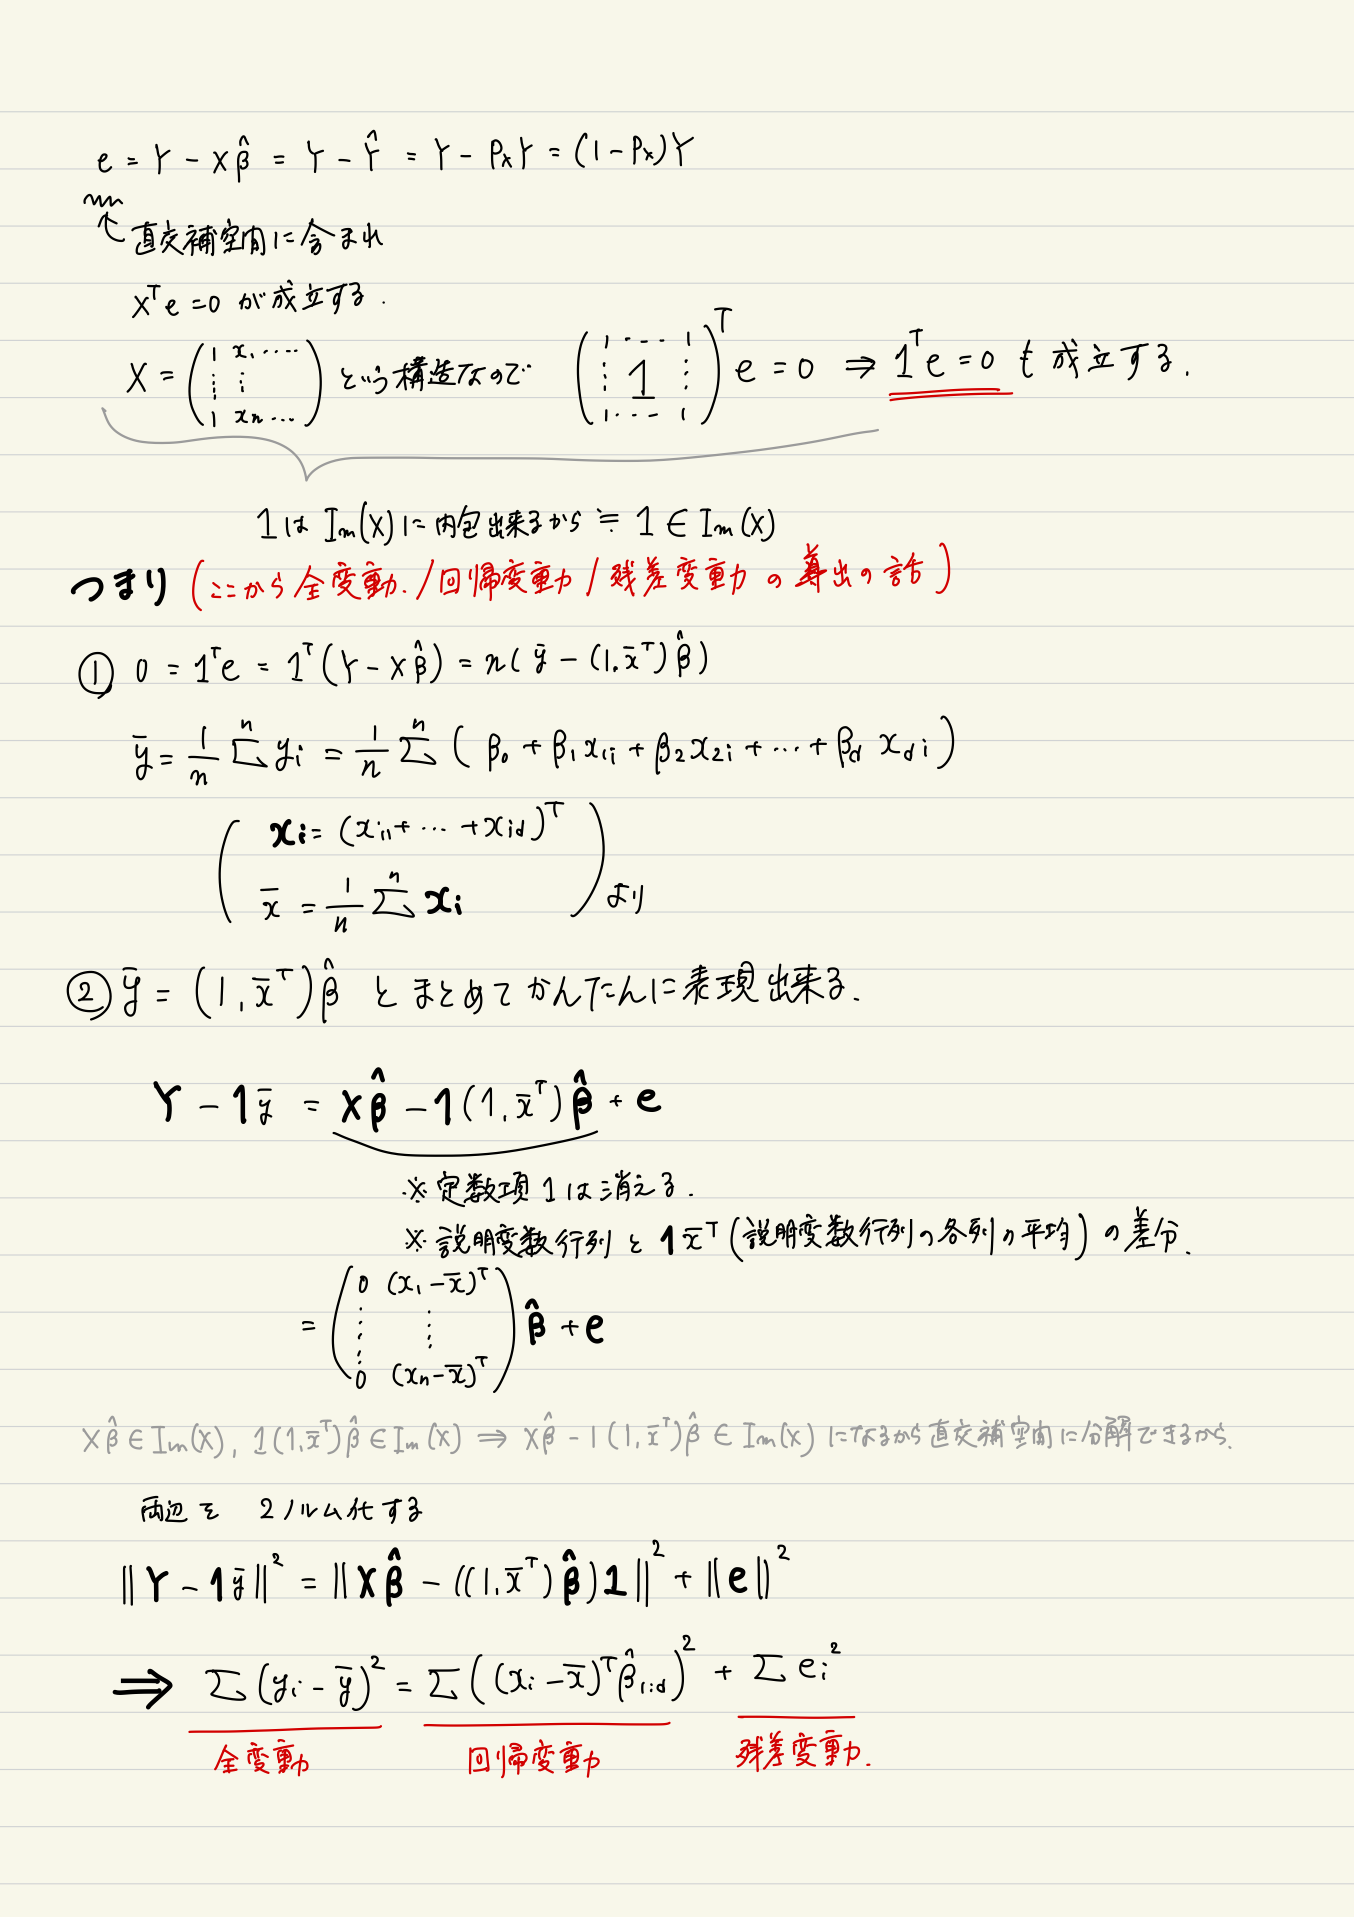 e = Y − Xβ̂ = Y − Ŷ = Y − PₓY = (1 − Pₓ)Y
直交補空間に含まれ
Xᵀe = 0 が成立する.
X = (1 x₁ ····· ⋮ ⋮ 1 xₙ ···) という構造なので (1 ···· 1 ⋮ 1 ⋮ 1 ···· 1)ᵀ e = 0 ⇒ 1ᵀe = 0 も成立する.
1は Im(X)に内包出来るから ≒ 1 ∈ Im(X)
つまり (ここから全変動./回帰変動/残差変動の算出の話)
① 0 = 1ᵀe = 1ᵀ(Y − Xβ̂) = n(ȳ − (1, x̄ᵀ)β̂)
ȳ = 1/n Σⁿ yᵢ = 1/n Σⁿ (β₀ + β₁x₁ᵢ + β₂x₂ᵢ + ··· + β_d x_dᵢ)
(xᵢ = (xᵢ₁ + ··· + x_id)ᵀ
x̄ = 1/n Σⁿ xᵢ) より
② ȳ = (1, x̄ᵀ)β̂ とまとめてかんたんに表現出来る.
Y − 1ȳ = Xβ̂ − 1(1, x̄ᵀ)β̂ + e
※ 定数項1は消える.
※ 説明変数行列と 1x̄ᵀ(説明変数行列の各列の平均)の差分.
= (0 (x₁ − x̄)ᵀ ⋮ ⋮ 0 (xₙ − x̄)ᵀ) β̂ + e
Xβ̂ ∈ Im(X), 1(1, x̄ᵀ)β̂ ∈ Im(X) ⇒ Xβ̂ − 1(1, x̄ᵀ)β̂ ∈ Im(X) になるから直交補空間に分解できるから.
両辺を 2ノルム化する
‖Y − 1ȳ‖² = ‖Xβ̂ − ((1, x̄ᵀ)β̂)1‖² + ‖e‖²
⇒ Σ(yᵢ − ȳ)² = Σ((xᵢ − x̄)ᵀβ̂₁:d)² + Σeᵢ²
全変動 回帰変動 残差変動.